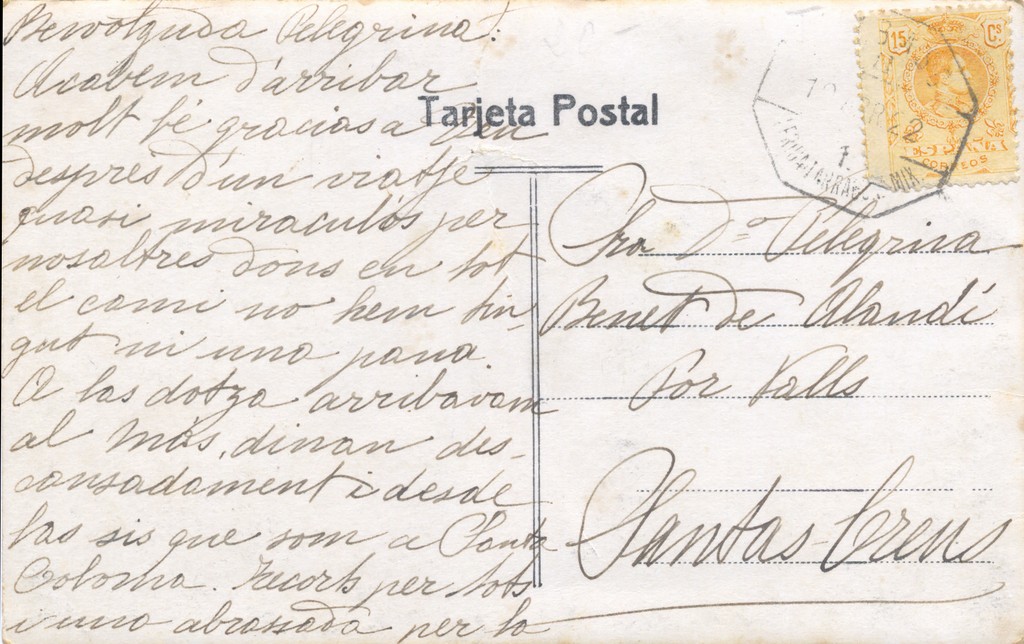 Benvolguda Pelegrina:
Acabem d'arribar
molt bé gracias a Deu
desprès d'un viatje
quasi miraculós per
nosaltres dons en tot
el cami no hem tin-
gut ni una pana.
A las dotza arribavam
al Más, dinan des-
cansadament i desde
las sis que som a Santa
Coloma. Recorts per tots
i una abrassada per la
Tarjeta Postal
15 Cs
CORREOS
22
Sra Dª Pelegrina
Benet de Alandí
Por Valls
Santas-Creus